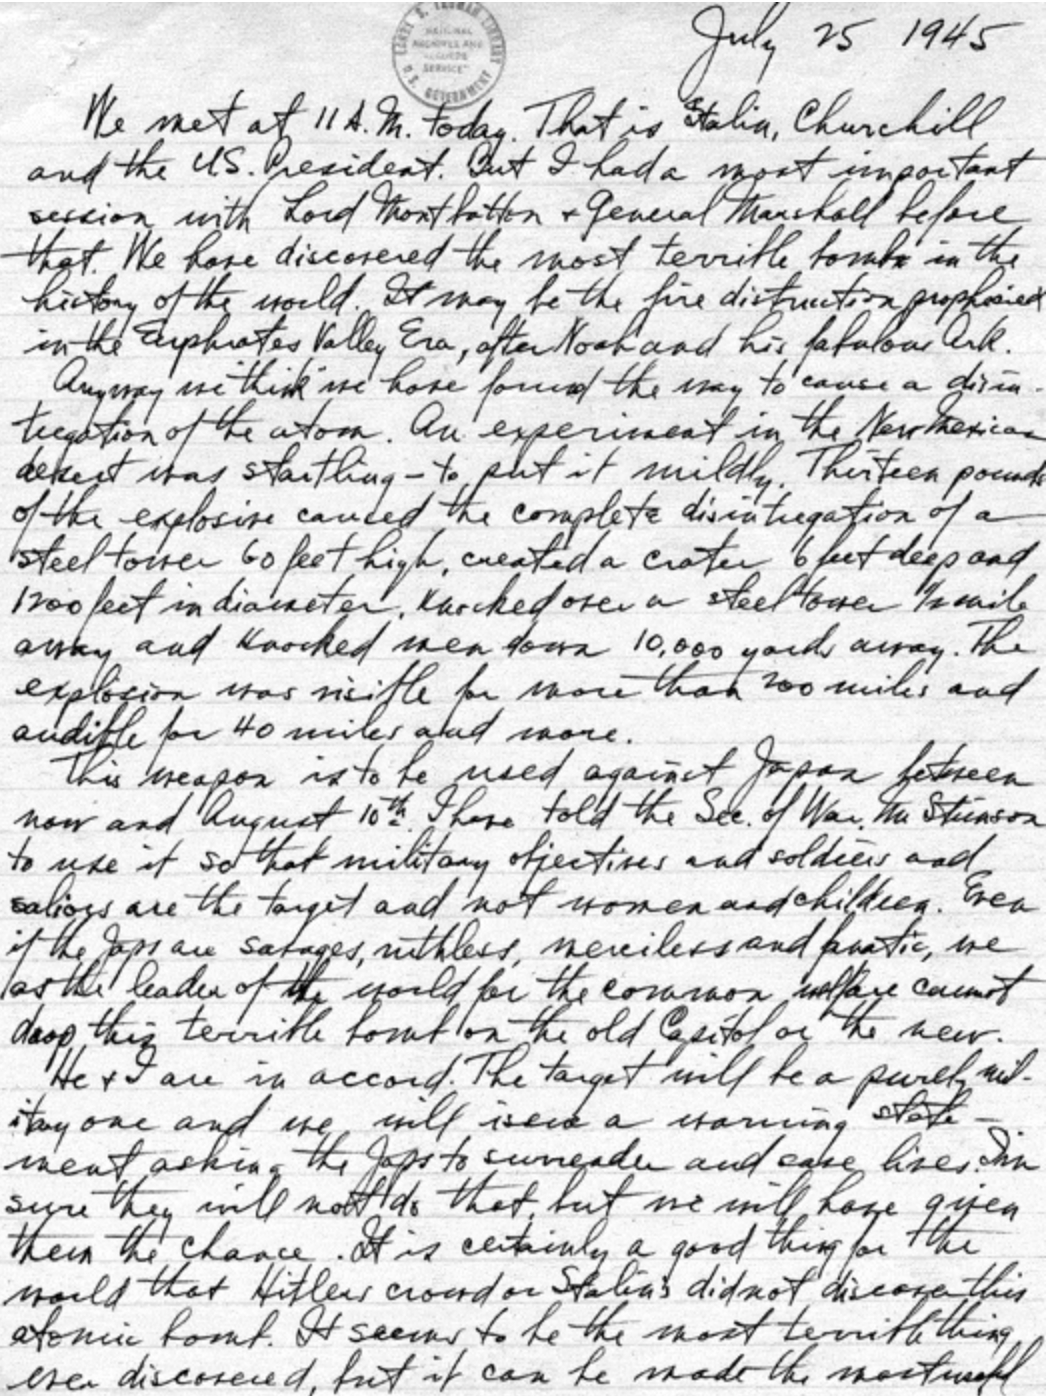 HARRY S. TRUMAN LIBRARY
NATIONAL
ARCHIVES AND
RECORDS
SERVICE
U.S. GOVERNMENT
July 25 1945
We met at 11 A.M. today. That is Stalin, Churchill
and the U.S. President. But I had a most important
session with Lord Montbatton & General Marshall before
that. We have discovered the most terrible bomb in the
history of the world. It may be the fire distruction prophesied
in the Euphrates Valley Era, after Noah and his fabulous Ark.
Anyway we think we have found the way to cause a disin-
tegration of the atom. An experiment in the New Mexican
desert was startling - to put it mildly. Thirteen pounds
of the explosive caused the complete disintegration of a
steel tower 60 feet high, created a crater 6 feet deep and
1200 feet in diameter, knocked over a steel tower 1/2 mile
away and knocked men down 10,000 yards away. The
explosion was visible for more than 200 miles and
audible for 40 miles and more.
This weapon is to be used against Japan between
now and August 10th. I have told the Sec. of War, Mr Stimson
to use it so that military objectives and soldiers and
sailors are the target and not women and children. Even
if the Japs are savages, ruthless, merciless and fanatic, we
as the leader of the world for the common welfare cannot
drop this terrible bomb on the old Capitol or the new.
He & I are in accord. The target will be a purely mil-
itary one and we will issue a warning state-
ment asking the Japs to surrender and save lives. I'm
sure they will not do that, but we will have given
them the chance. It is certainly a good thing for the
world that Hitlers crowd or Stalin's did not discover this
atomic bomb. It seems to be the most terrible thing
ever discovered, but it can be made the most useful